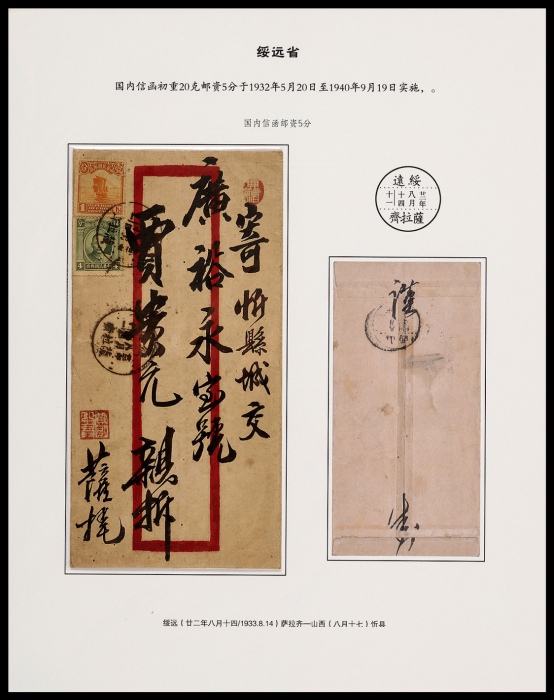 绥远省
国内信函初重20克邮资5分于1932年5月20日至1940年9月19日实施，。
国内信函邮资5分
綏遠
廿二年
八月
十四
十一
薩拉齊
寄忻縣城交
廣裕永寶號
賈贵元 親拆
薩托
1
4
謹
封
绥远（廿二年八月十四/1933.8.14）萨拉齐—山西（八月十七）忻县